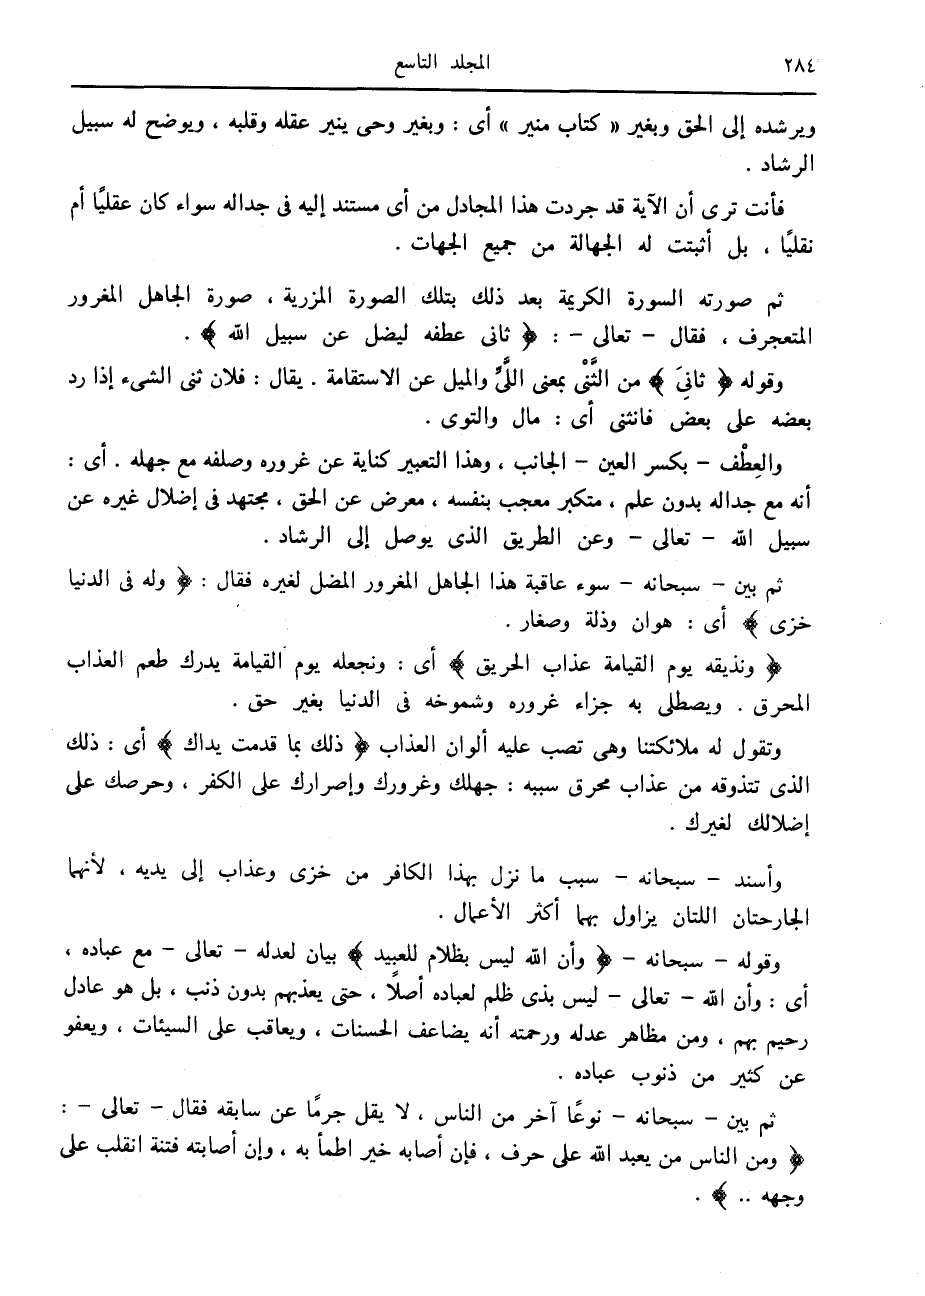 ٢٨٤
المجلد التاسع
ويرشده إلى الحق وبغير « كتاب منير » أى : وبغير وحى ينير عقله وقلبه ، ويوضح له سبيل
الرشاد .
فأنت ترى أن الآية قد جردت هذا المجادل من أى مستند إليه فى جداله سواء كان عقليًّا أم
نقليًّا ، بل أثبتت له الجهالة من جميع الجهات .
ثم صورته السورة الكريمة بعد ذلك بتلك الصورة المزرية ، صورة الجاهل المغرور
المتعجرف ، فقال – تعالى – : ﴿ ثانى عطفه ليضل عن سبيل الله ﴾ .
وقوله ﴿ ثانِىَ ﴾ من الثَّنْى بمعنى اللىَّ والميل عن الاستقامة . يقال : فلان ثنى الشىء إذا رد
بعضه على بعض فانثنى أى : مال والتوى .
والعِطْف – بكسر العين – الجانب ، وهذا التعبير كناية عن غروره وصلفه مع جهله . أى :
أنه مع جداله بدون علم ، متكبر معجب بنفسه ، معرض عن الحق ، مجتهد فى إضلال غيره عن
سبيل الله – تعالى – وعن الطريق الذى يوصل إلى الرشاد .
ثم بين – سبحانه – سوء عاقبة هذا الجاهل المغرور المضل لغيره فقال : ﴿ وله فى الدنيا
خزى ﴾ أى : هوان وذلة وصغار .
﴿ ونذيقه يوم القيامة عذاب الحريق ﴾ أى : ونجعله يوم القيامة يدرك طعم العذاب
المحرق . ويصطلى به جزاء غروره وشموخه فى الدنيا بغير حق .
وتقول له ملائكتنا وهى تصب عليه ألوان العذاب ﴿ ذلك بما قدمت يداك ﴾ أى : ذلك
الذى تتذوقه من عذاب محرق سببه : جهلك وغرورك وإصرارك على الكفر ، وحرصك على
إضلالك لغيرك .
وأسند – سبحانه – سبب ما نزل بهذا الكافر من خزى وعذاب إلى يديه ، لأنهما
الجارحتان اللتان يزاول بهما أكثر الأعمال .
وقوله – سبحانه – ﴿ وأن الله ليس بظلام للعبيد ﴾ بيان لعدله – تعالى – مع عباده ،
أى : وأن الله – تعالى – ليس بذى ظلم لعباده أصلًا ، حتى يعذبهم بدون ذنب ، بل هو عادل
رحيم بهم ، ومن مظاهر عدله ورحمته أنه يضاعف الحسنات ، ويعاقب على السيئات ، ويعفو
عن كثير من ذنوب عباده .
ثم بين – سبحانه – نوعًا آخر من الناس ، لا يقل جرمًا عن سابقه فقال – تعالى – :
﴿ ومن الناس من يعبد الله على حرف ، فإن أصابه خير اطمأ به ، وإن أصابته فتنة انقلب على
وجهه .. ﴾ .